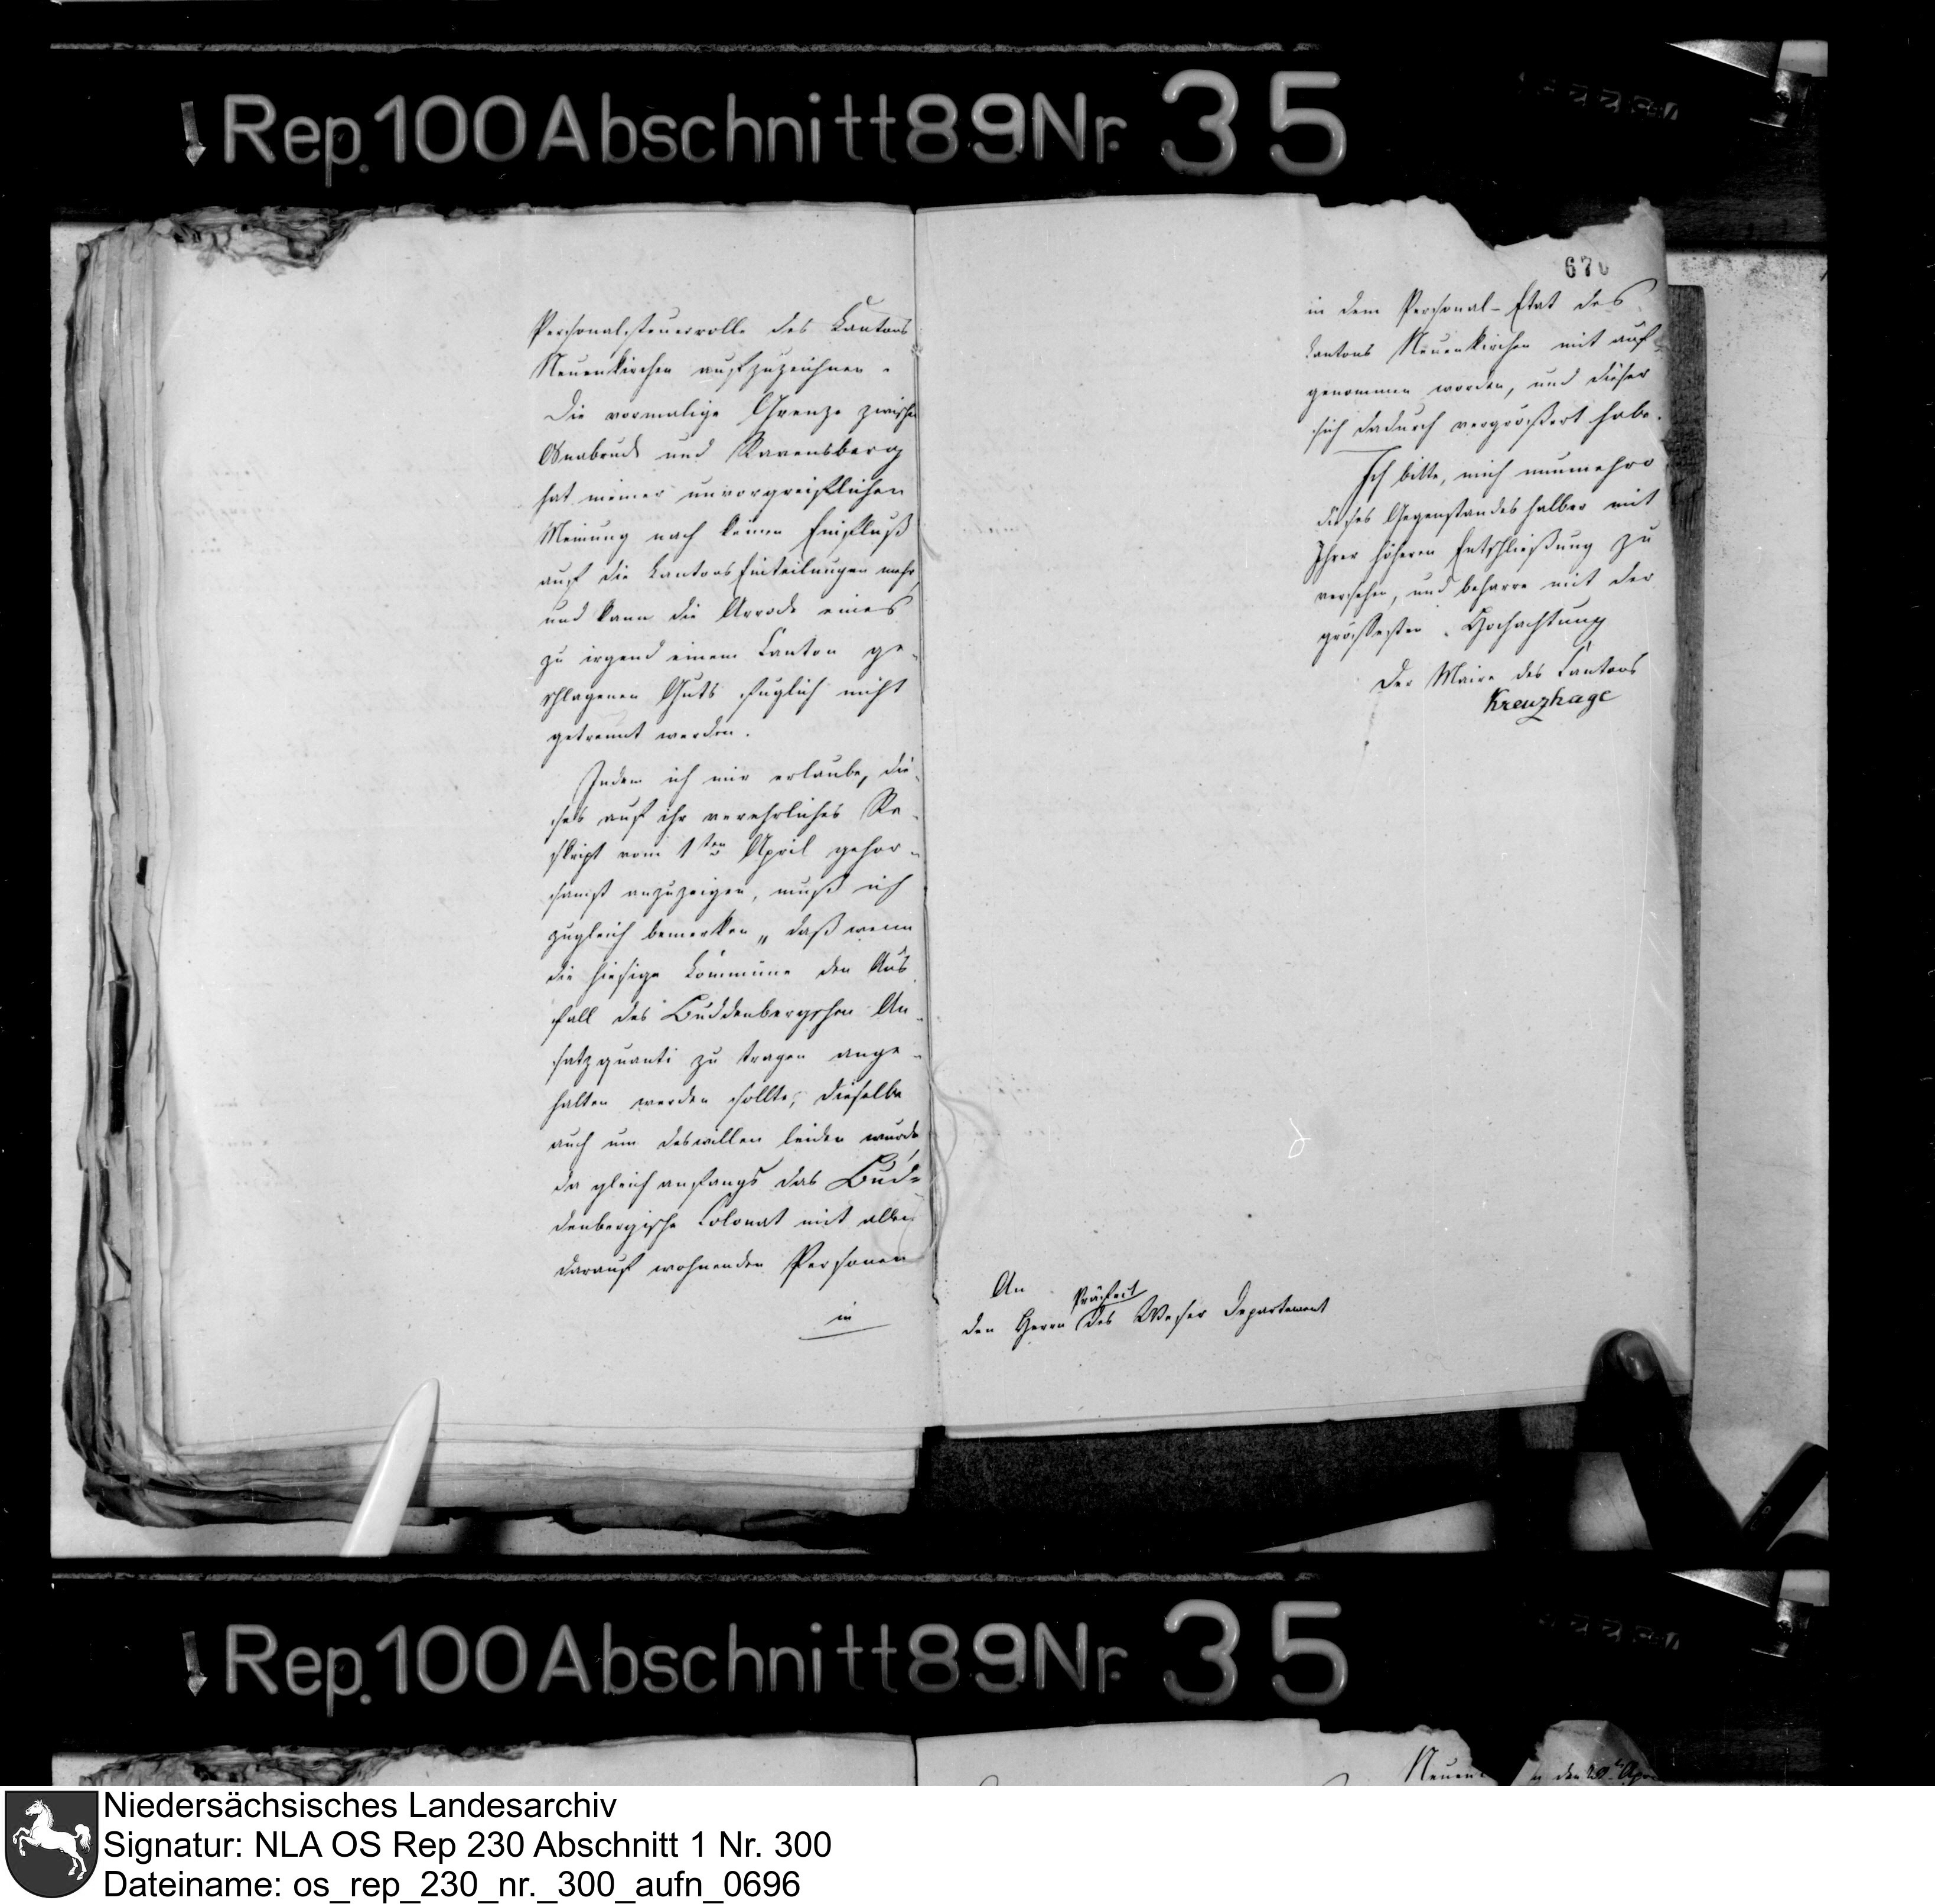 Rep. 100 Abschnitt 89 Nr. 35
Personalsteuerrolle des Kantons
Neuenkirchen aufzuzeichnen.
Die vormalige Grenze zwischen
Osnabruck und Ravensberg
hat meiner unvorgreiflichen
Meinung nach keinen Einfluß
auf die Kantons Einteilungen mehr,
und kann die Arrode eines
zu irgend einem Canton ge-
schlagenen Guts fuglich nicht
getrennt werden.
Indem ich mir erlaube, die-
ses auf ihr verehrliches Re-
skript vom 1ten April gehor-
samst anzuzeigen, muß ich
zugleich bemerken „ daß wenn
die hiesige Kommune den Aus
fall des Buddenbergschen An-
satzquanti zu tragen ange-
halten werden sollte, dieselbe
auch um deswillen leiden wurde
da gleich anfangs das Bud-
denbergische Colonat mit allen
darauf wohnenden Personen
in
670
in dem Personal-Etat des
Cantons Neuenkirchen mit auf-
genommen worden, und dieser
sich dadurch vergrößert habe.
Ich bitte, mich nunmehro
dieses Gegenstandes halber mit
Ihrer höheren Entschließung zu
versehen, und beharre mit der
größesten Hochachtung
Der Maire des Cantons
Kreuzhage
An
Präfect
den Herrn des Weser Departement
Rep. 100 Abschnitt 89 Nr. 35
den Apr
Niedersächsisches Landesarchiv
Signatur: NLA OS Rep 230 Abschnitt 1 Nr. 300
Dateiname: os_rep_230_nr._300_aufn_0696